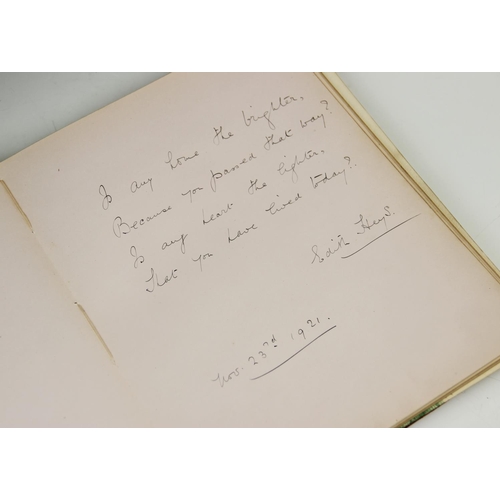 Is any home the brighter,
Because you passed that way?
Is any heart the lighter,
That you have lived today?
Edith Heys.
Nov. 23rd 1921.